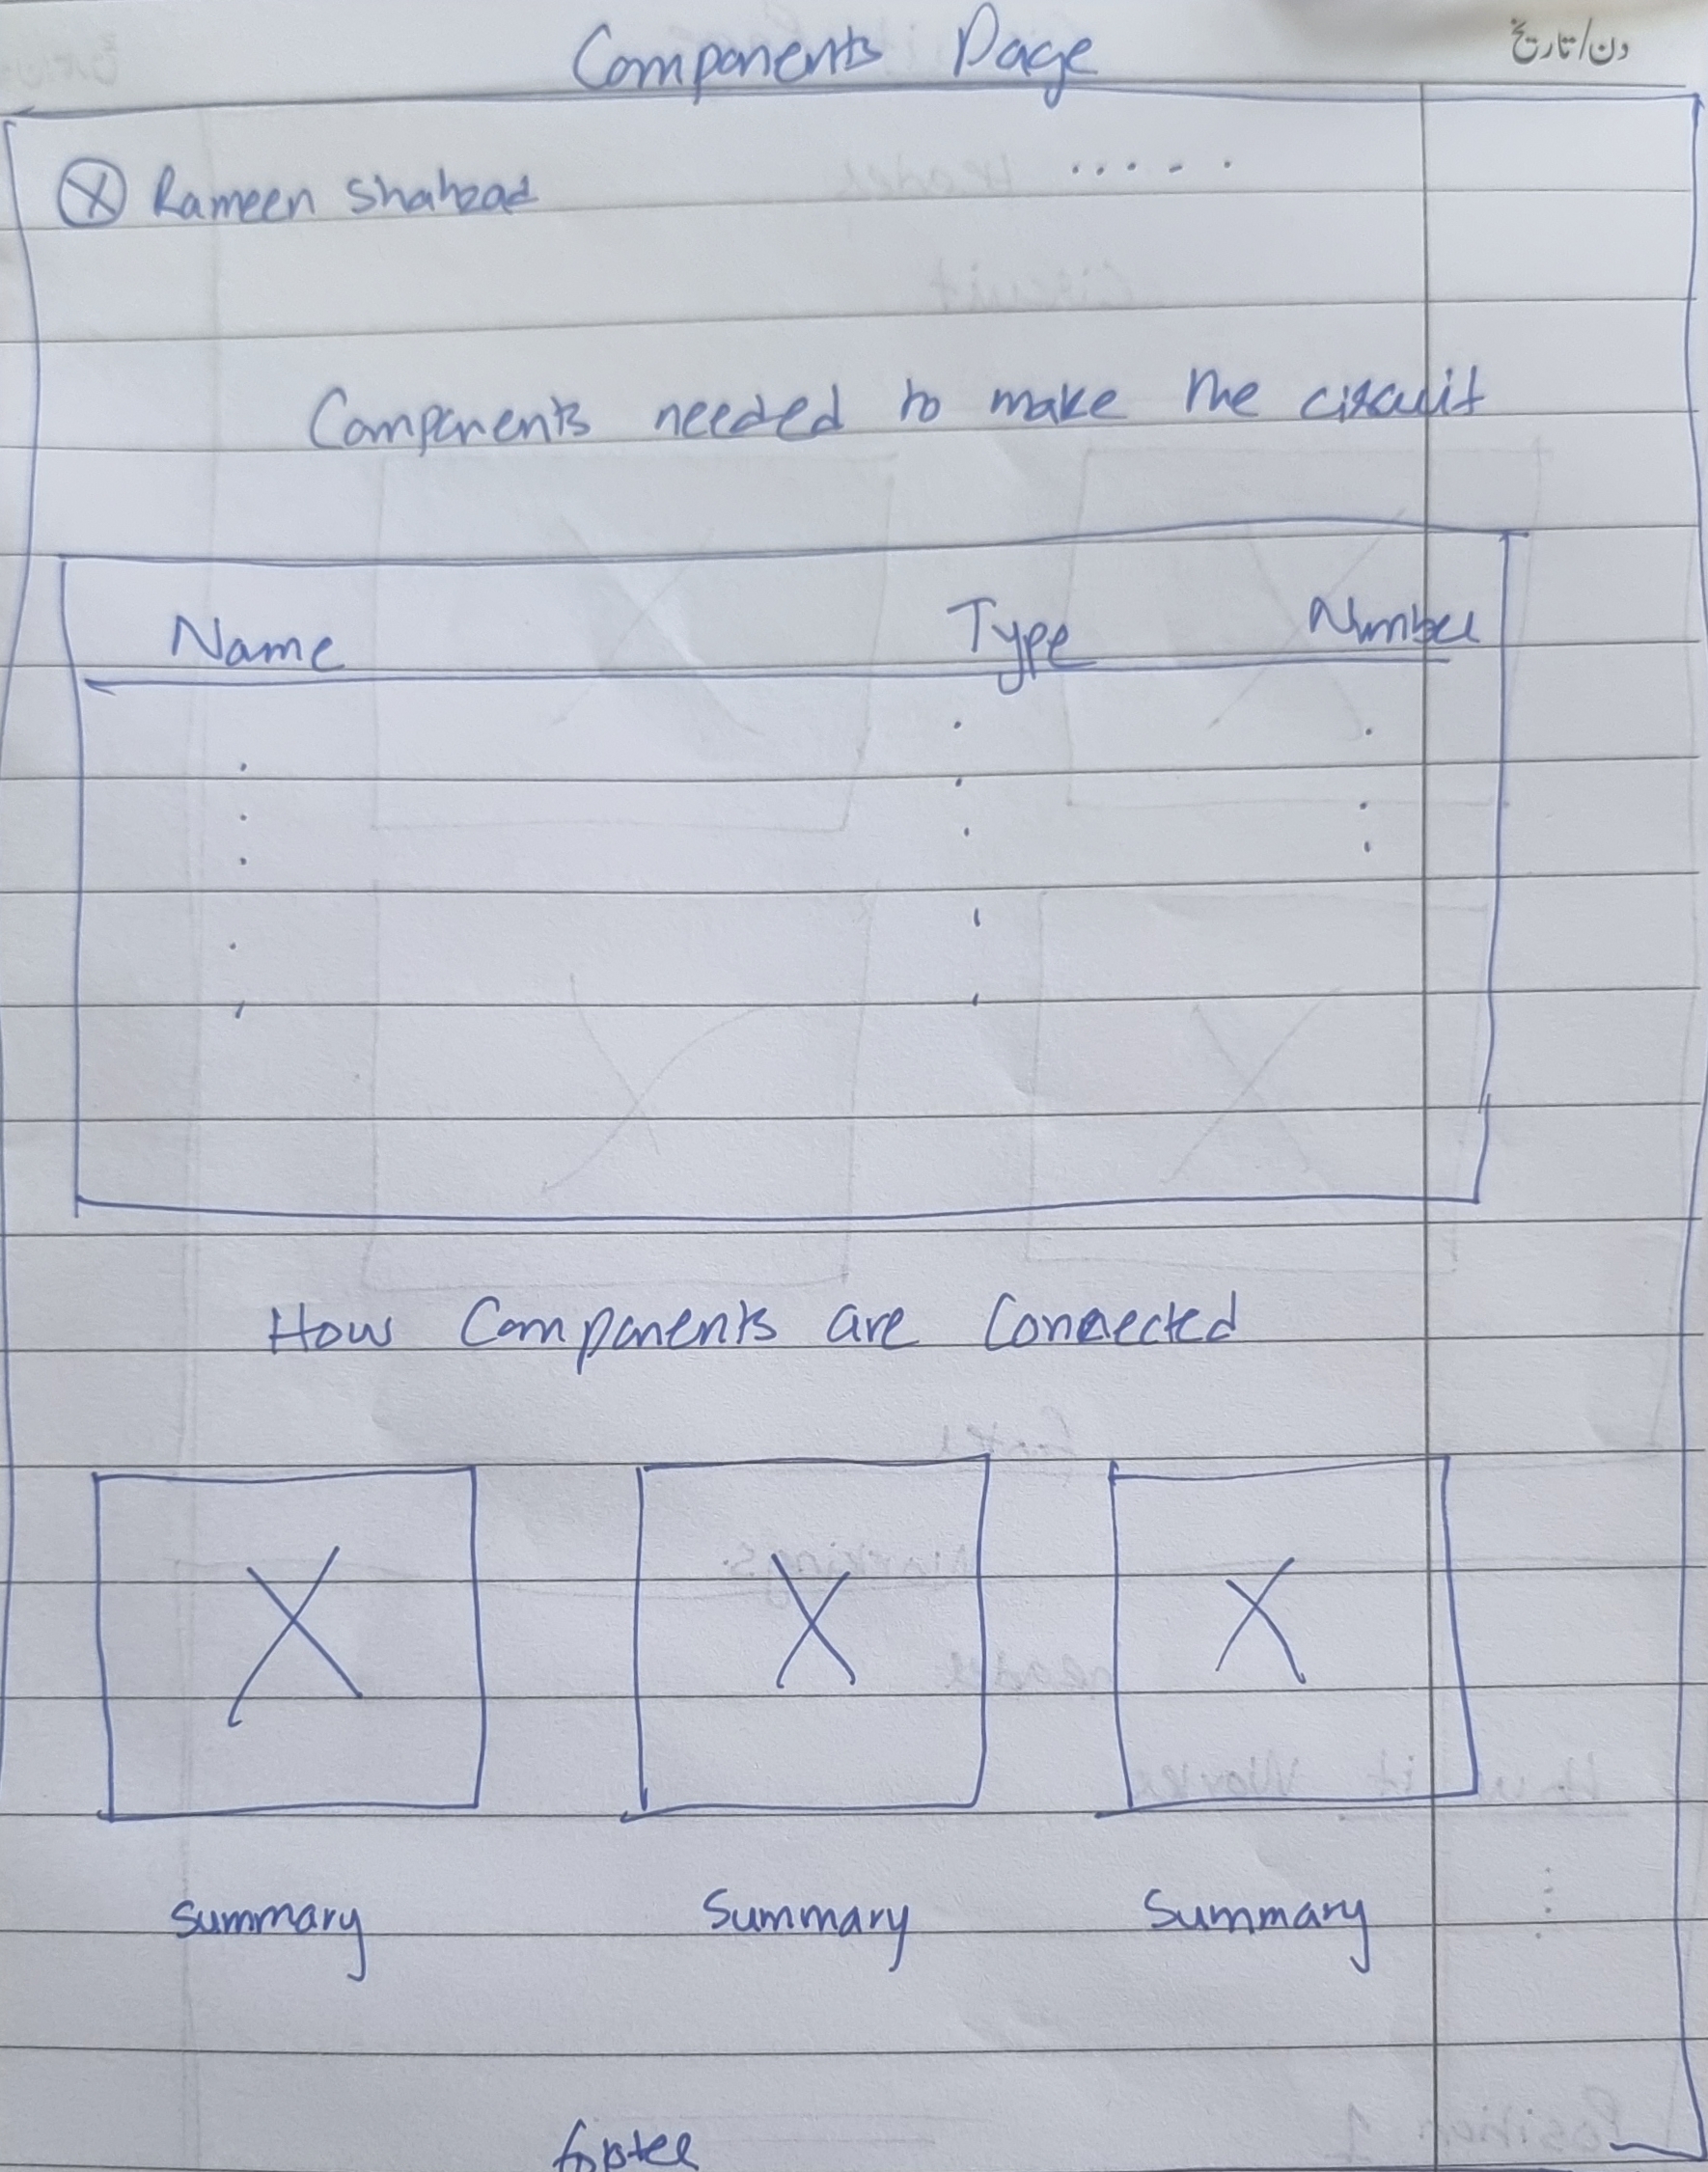 Components Page
دن/تاریخ
Rameen Shahzad .....
Components needed to make the circuit
Name Type Number
How Components are Connected
Summary Summary Summary
footer